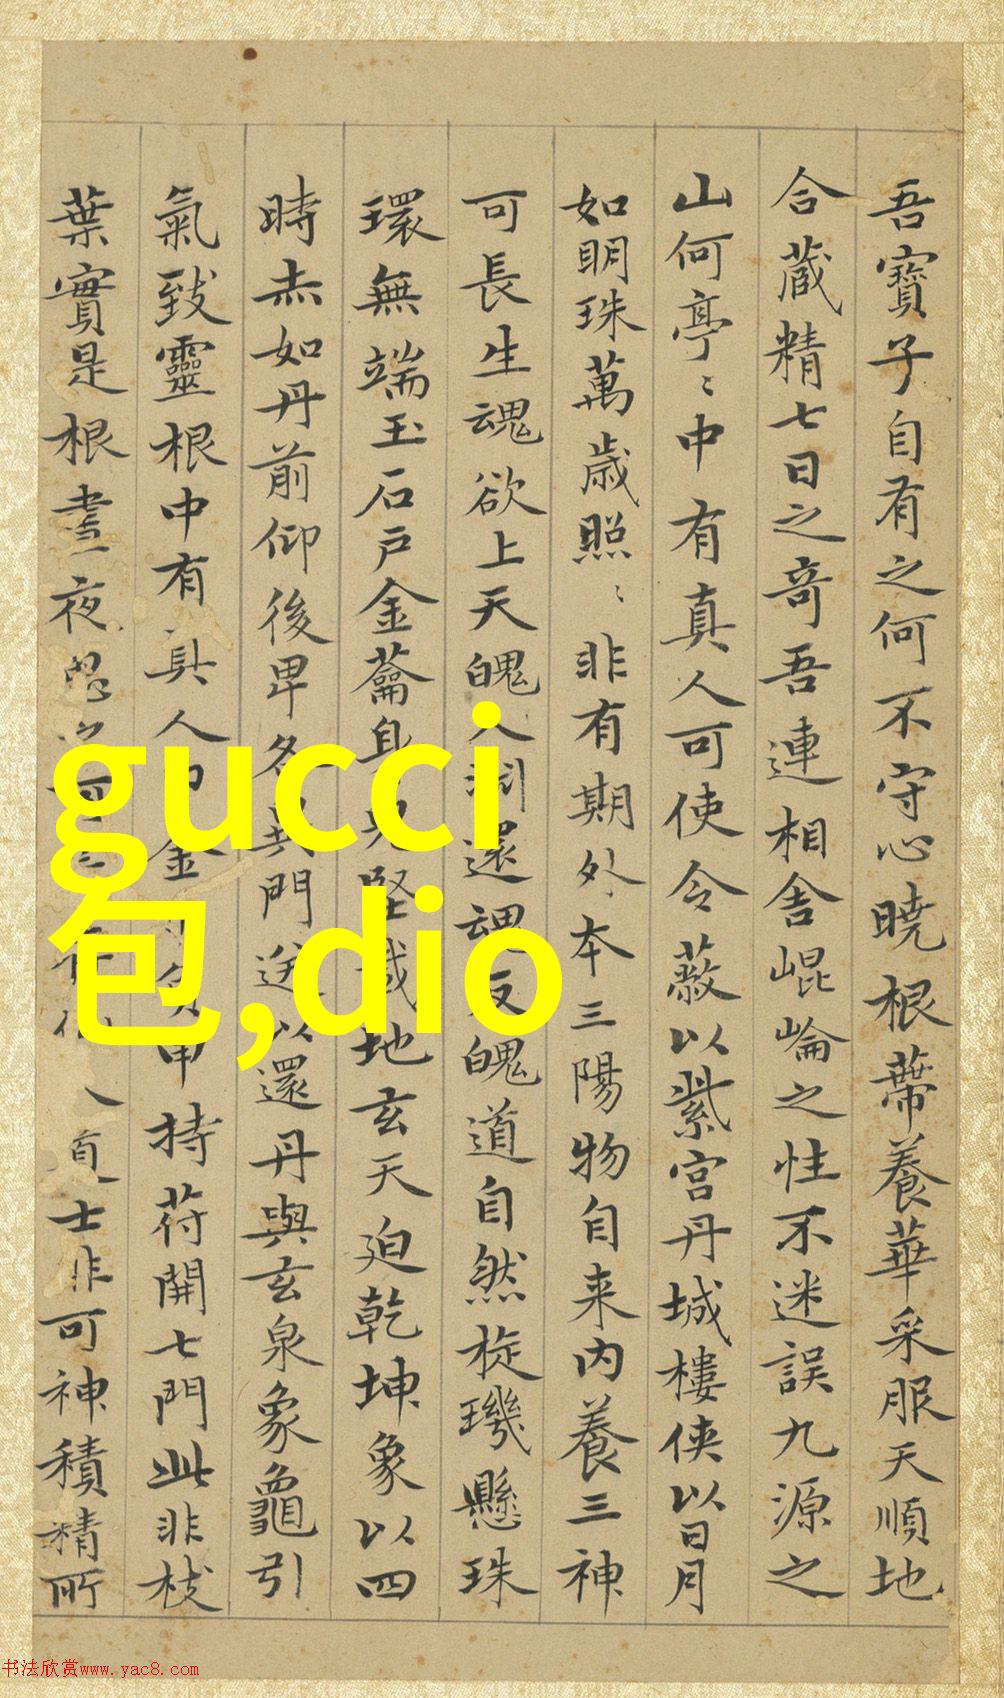 吾寶子自有之何不守心曉根蔕養華采服天順地
合蔵精七日之奇吾連相舎崐崘之性不迷誤九源之
山何亭〻中有真人可使令蔽以紫宮丹城樓侠以日月
如明珠萬歳照〻非有期外本三陽物自来内養三神
可長生魂欲上天魄入渕還魂反魄道自然旋璣懸珠
環無端玉石戸金蘥身皃堅載地玄天迫乾坤象以四
時赤如丹前仰後卑各異門送以還丹與玄泉象龜引
氣致靈根中有真人巾金巾負甲持苻開七門此非枝
葉實是根晝夜思士非可神積精所
gucci
包,dio
书法欣赏www.yac8.com